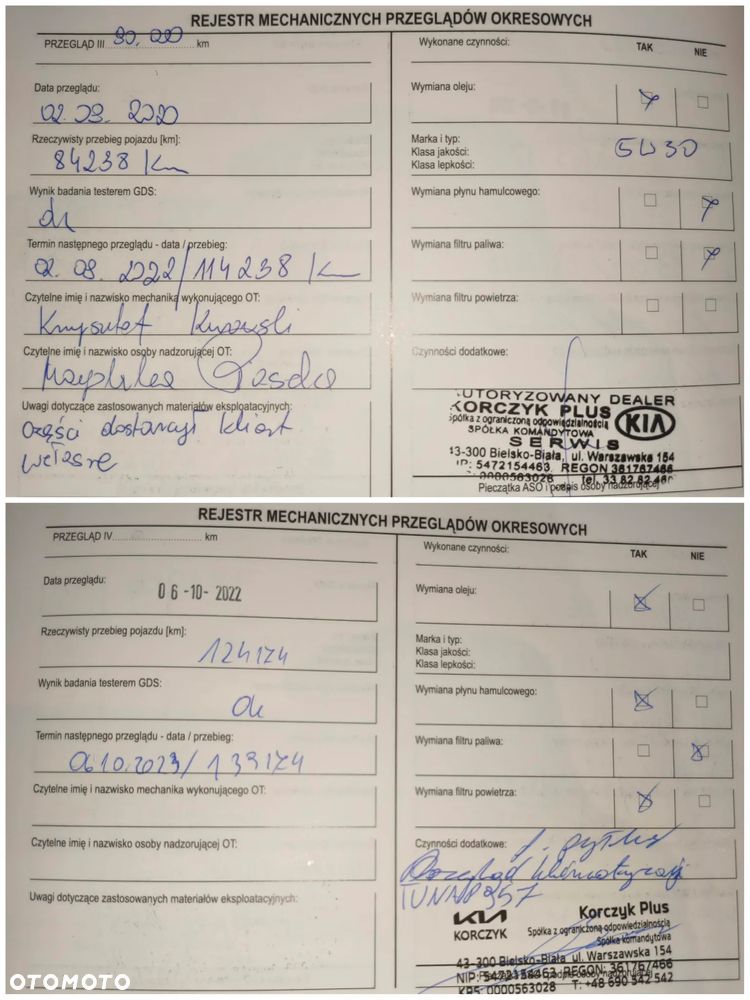 REJESTR MECHANICZNYCH PRZEGLĄDÓW OKRESOWYCH
PRZEGLĄD III 90.000 km
Data przeglądu:
02.09.2020
Rzeczywisty przebieg pojazdu [km]:
84238 km
Wynik badania testerem GDS:
ok
Termin następnego przeglądu - data / przebieg:
02.09.2022/114238 km
Czytelne imię i nazwisko mechanika wykonującego OT:
Krzysztof
Czytelne imię i nazwisko osoby nadzorującej OT:
Uwagi dotyczące zastosowanych materiałów eksploatacyjnych:
części dostarczył klient
własne
Wykonane czynności: TAK NIE
Wymiana oleju:
Marka i typ:
Klasa jakości: 5W30
Klasa lepkości:
Wymiana płynu hamulcowego:
Wymiana filtru paliwa:
Wymiana filtru powietrza:
Czynności dodatkowe:
AUTORYZOWANY DEALER
KORCZYK PLUS KIA
Spółka z ograniczoną odpowiedzialnością
SPÓŁKA KOMANDYTOWA
SERWIS
43-300 Bielsko-Biała, ul. Warszawska 154
NIP: 5472154463 REGON 361767466
KRS: 0000563028 tel. 33 82 82 46
Pieczątka ASO i podpis osoby nadzorującej
REJESTR MECHANICZNYCH PRZEGLĄDÓW OKRESOWYCH
PRZEGLĄD IV km
Data przeglądu:
06-10-2022
Rzeczywisty przebieg pojazdu [km]:
124174
Wynik badania testerem GDS:
ok
Termin następnego przeglądu - data / przebieg:
06.10.2023/139174
Czytelne imię i nazwisko mechanika wykonującego OT:
Czytelne imię i nazwisko osoby nadzorującej OT:
Uwagi dotyczące zastosowanych materiałów eksploatacyjnych:
Wykonane czynności: TAK NIE
Wymiana oleju:
Marka i typ:
Klasa jakości:
Klasa lepkości:
Wymiana płynu hamulcowego:
Wymiana filtru paliwa:
Wymiana filtru powietrza:
Czynności dodatkowe: f. pyłkowy
Przegląd klimatyzacji
KIA Korczyk Plus
KORCZYK Spółka z ograniczoną odpowiedzialnością
Spółka komandytowa
43-300 Bielsko-Biała ul. Warszawska 154
NIP: 5472154463 REGON: 361767466
KRS: 0000563028 T: +48 690 542 542
OTOMOTO